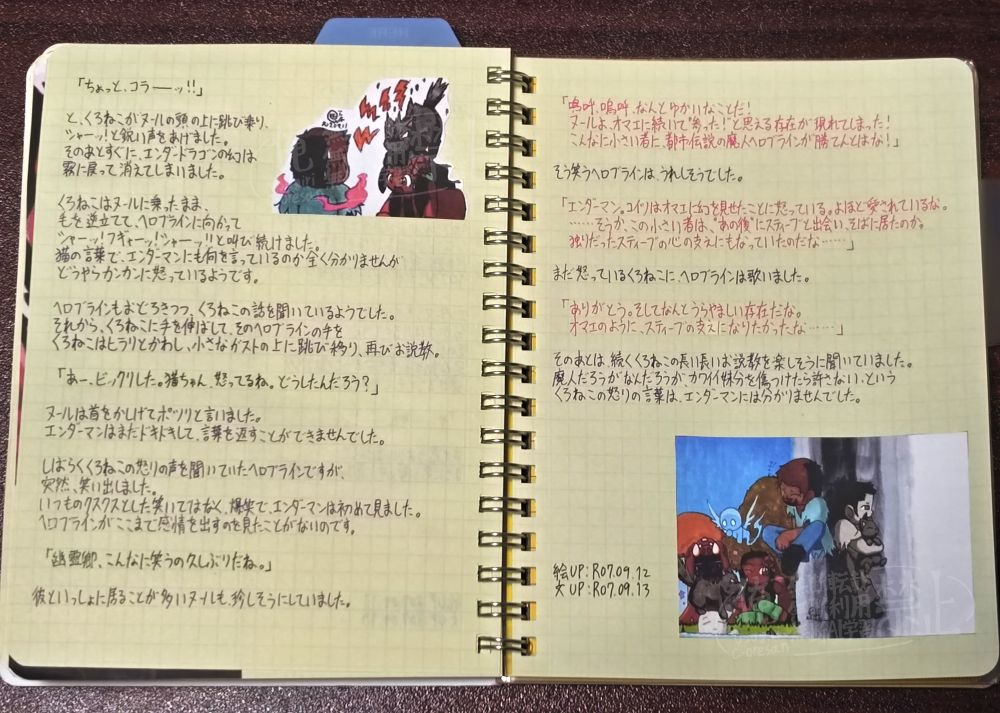 「ちょっと、コラーーッ!!」
と、くろねこがヌールの頭の上に跳び乗り、
シャーッ!と鋭い声をあげました。
そのあとすぐに、エンダードラゴンの幻は
霧に戻って消えてしまいました。
くろねこはヌールに乗ったまま、
毛を逆立てて、ヘロブラインに向かって
シャーッ!フギャーッ!シャーッ!!と叫び続けました。
猫の言葉で、エンダーマンにも何を言っているのか全く分かりませんが
どうやらカンカンに怒っているようです。
ヘロブラインもおどろきつつ、くろねこの話を聞いているようでした。
それから、くろねこに手を伸ばして、そのヘロブラインの手を
くろねこはヒラリとかわし、小さなガストの上に跳び移り、再びお説教。
「あー、ビックリした。猫ちゃん、怒ってるね。どうしたんだろう?」
ヌールは首をかしげてポツリと言いました。
エンダーマンはまだドキドキして、言葉を返すことができませんでした。
しばらくくろねこの怒りの声を聞いていたヘロブラインですが、
突然、笑い出しました。
いつものクスクスとした笑いではなく、爆笑で、エンダーマンは初めて見ました。
ヘロブラインがここまで感情を出すのを見たことがないのです。
「幽霊卿、こんなに笑うの久しぶりだね。」
彼といっしょに居ることが多いヌールも、珍しそうにしていました。
「嗚呼、嗚呼、なんとゆかいなことだ!
ヌールよ、オマエに続いて"参った!"と思える存在が現れてしまった!
こんなに小さい者に、都市伝説の魔人ヘロブラインが勝てんとはな!」
そう笑うヘロブラインは、うれしそうでした。
「エンダーマン。コイツはオマエに幻を見せたことに怒っている。よほど愛されているな。
……そうか、この小さい者は、"あの後"にスティーブと出会い、そばに居たのか。
独りだったスティーブの心の支えにもなっていたのだな……」
まだ怒っているくろねこに、ヘロブラインは歌いました。
「ありがとう。そしてなんとうらやましい存在だな。
オマエのように、スティーブの支えになりたかったな……」
そのあとは、続くくろねこの長い長いお説教を楽しそうに聞いていました。
魔人だろうがなんだろうが、カワイイ妹分を傷つけたら許さない、という
くろねこの怒りの言葉は、エンダーマンには分かりませんでした。
絵UP:R07.09.12
文UP:R07.09.13